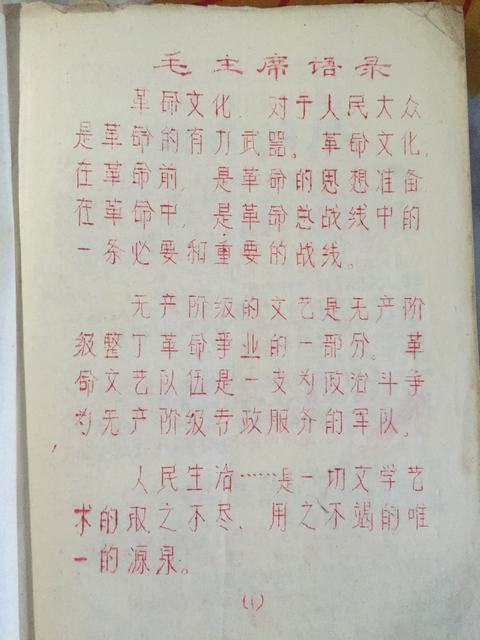 毛主席语录
革命文化,对于人民大众
是革命的有力武器。革命文化,
在革命前,是革命的思想准备
在革命中,是革命总战线中的
一条必要和重要的战线。
无产阶级的文艺是无产阶
级整丁革命事业的一部分。革
命文艺队伍是一支为政治斗争
为无产阶级专政服务的军队。
人民生活……是一切文学艺
术的取之不尽,用之不竭的唯
一的源泉。
(1)